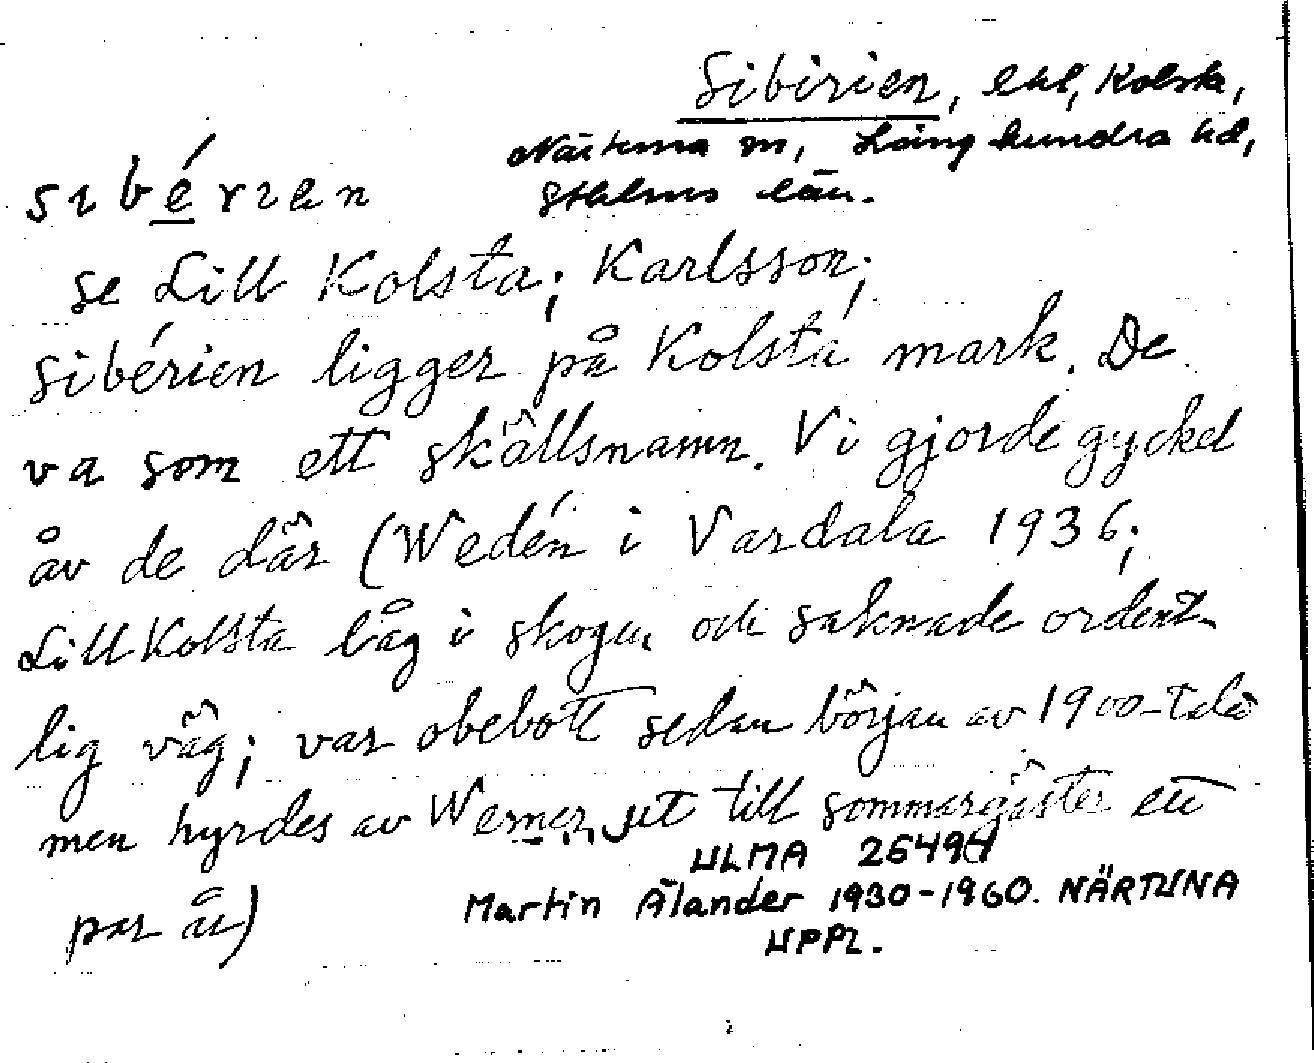 Sibirien, lht, Kolsta,
Närtuna sn, Långhundra hd,
Sthlms län.
sibérien
se Lill Kolsta; Karlsson;
Sibérien ligger på Kolsta mark. De
va som ett skällsnamn. Vi gjorde gyckel
åv de där (Wedén i Vardala 1936;
Lill Kolsta låg i skogen och saknade ordent-
lig väg; var obebott sedan början av 1900-talet
men hyrdes av Werner ut till sommargäster ett
par år)
ULMA 26494
Martin Ålander 1930-1960. NÄRTUNA
UPPL.